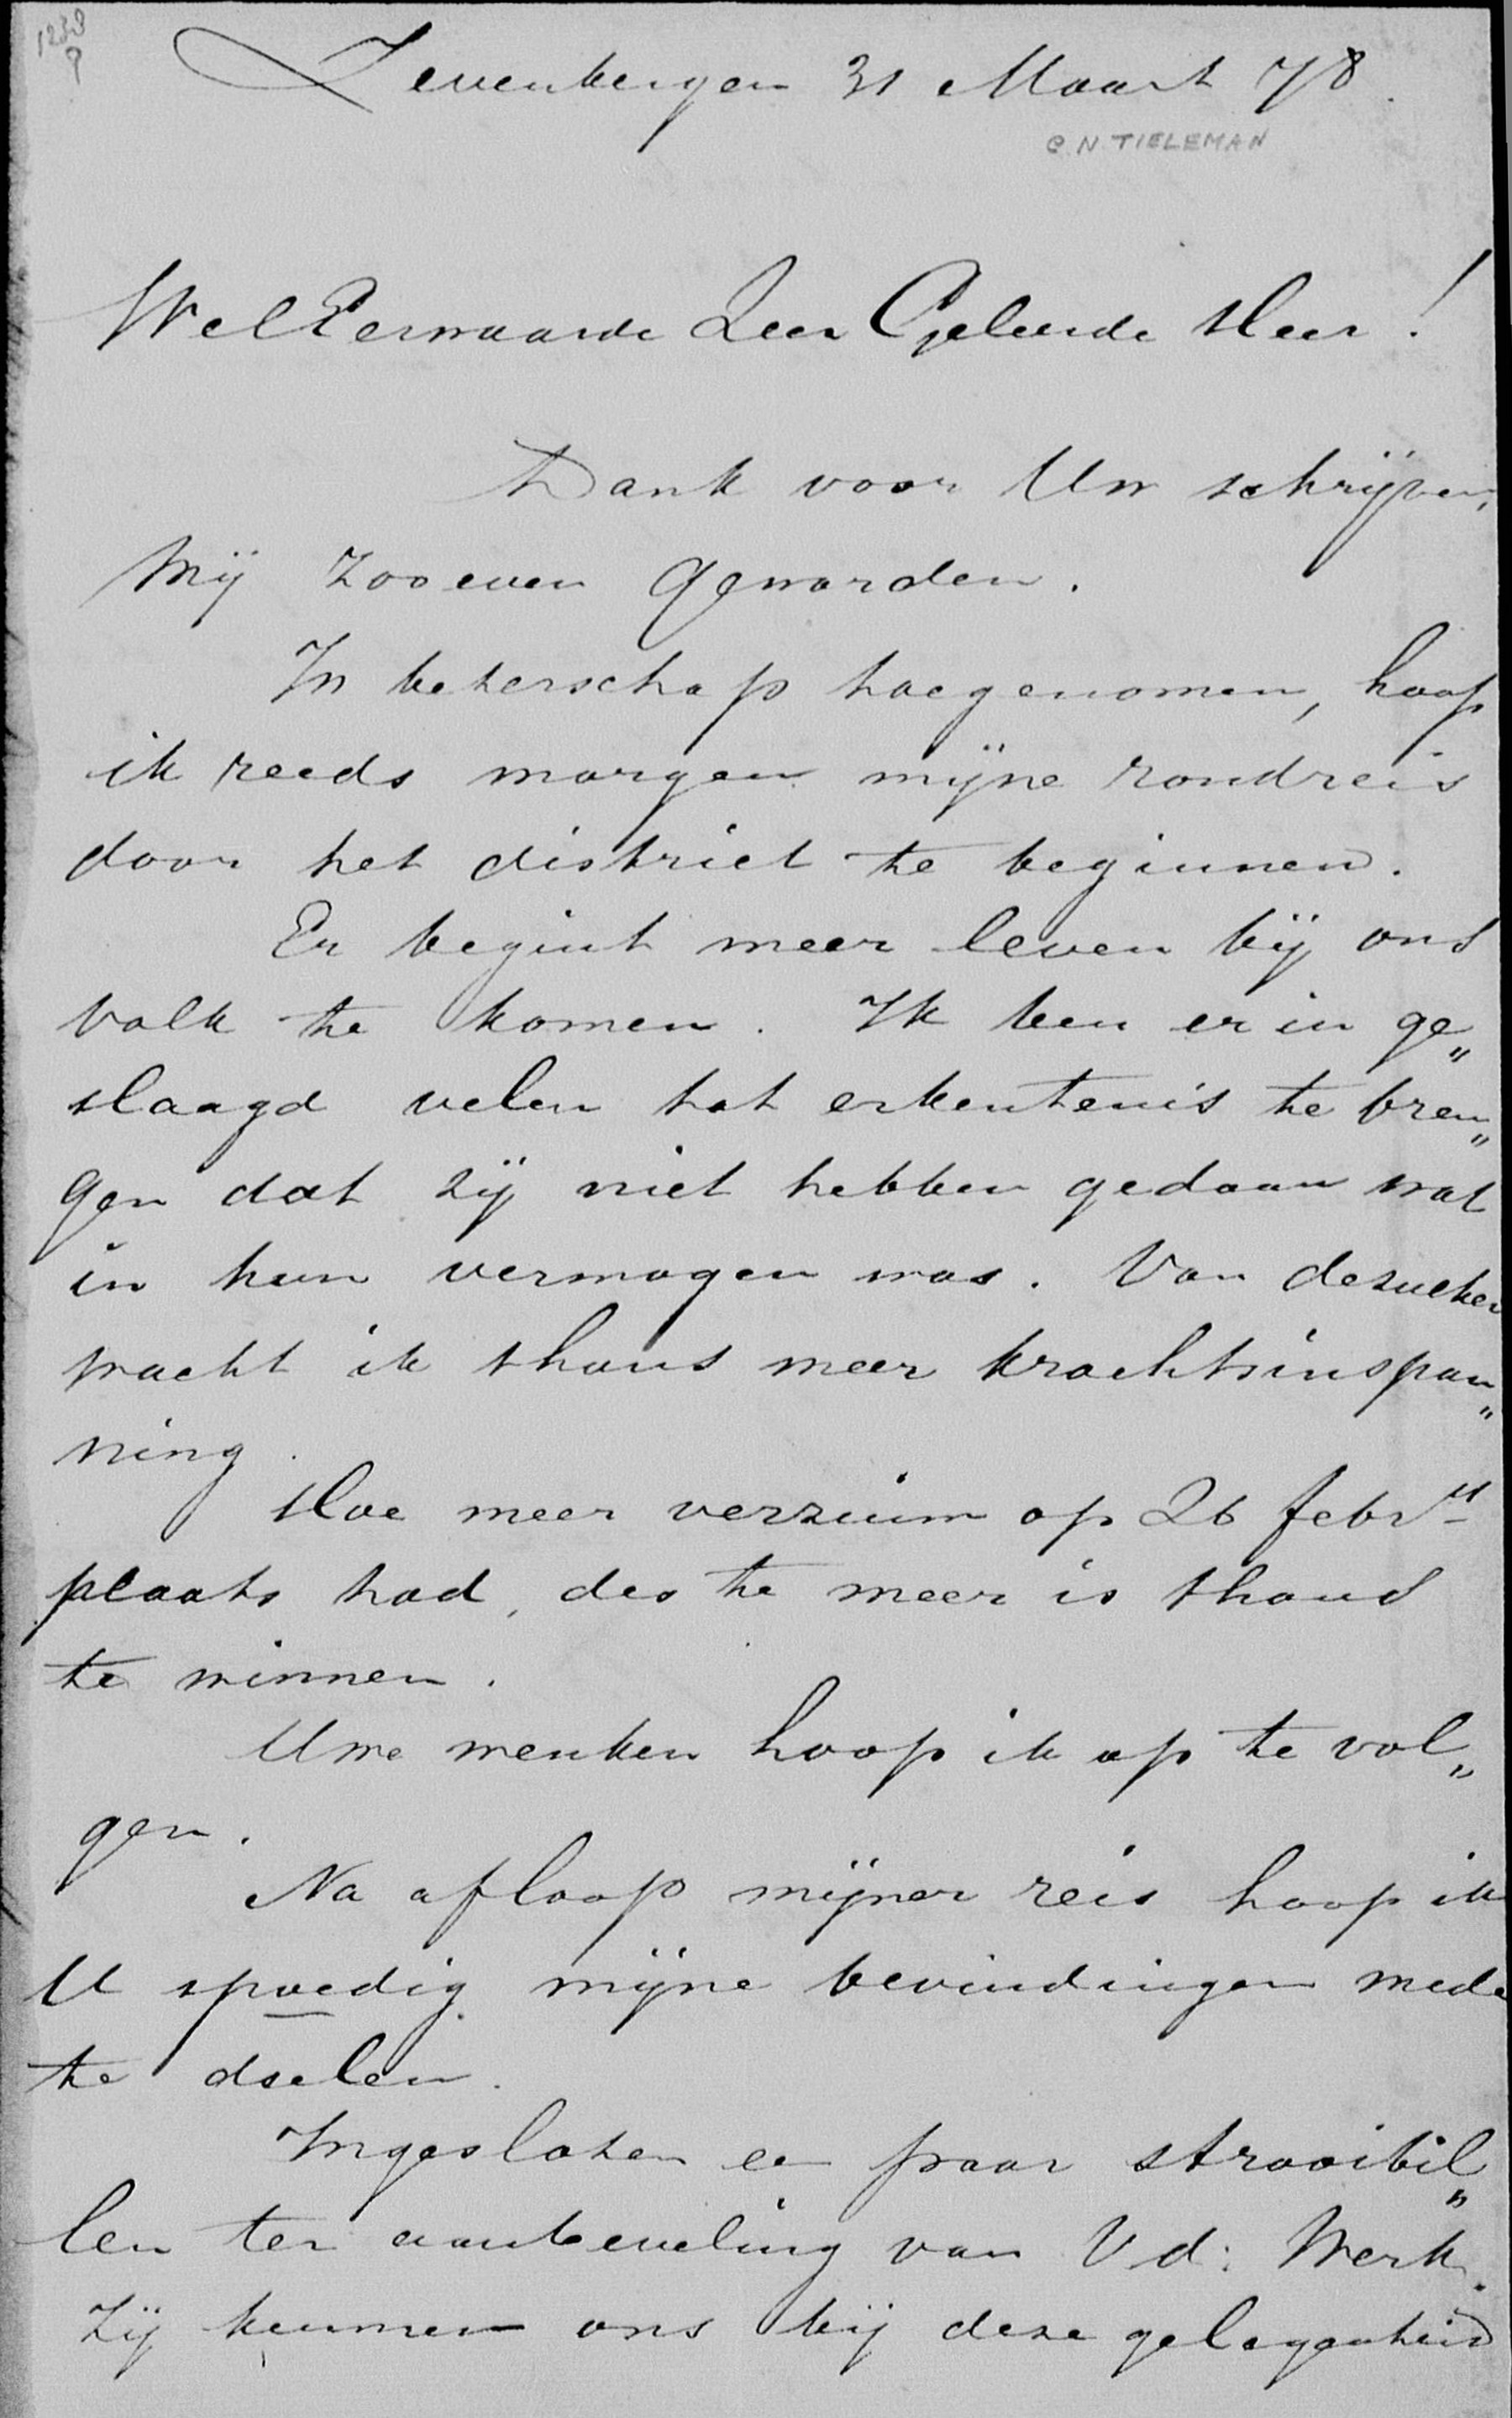 1239
9
Zevenbergen 31 Maart 78.
C. N. TIELEMAN
WelEerwaarde Zeer Geleerde Heer!
Dank voor Uw schrijven,
mij zooeven geworden.
In beterschap toegenomen, hoop
ik reeds morgen mijne rondreis
door het district te beginnen.
Er begint meer leven bij ons
volk te komen. Ik ben er in ge„
slaagd velen tot erkentenis te bren„
gen dat zij niet hebben gedaan wat
in hun vermogen was. Van dezulken
wacht ik thans meer krachtsinspan„
ning.
Hoe meer verzuim op 26 febrij
plaats had, des te meer is thans
te winnen.
Uwe wenken hoop ik op te vol„
gen.
Na afloop mijner reis hoop ik
U spoedig mijne bevindingen mede
te deelen.
Ingesloten een paar strooibil„
len ter aanbeveling van V.d. Werk.
Zij kunnen ons bij deze gelegenheid